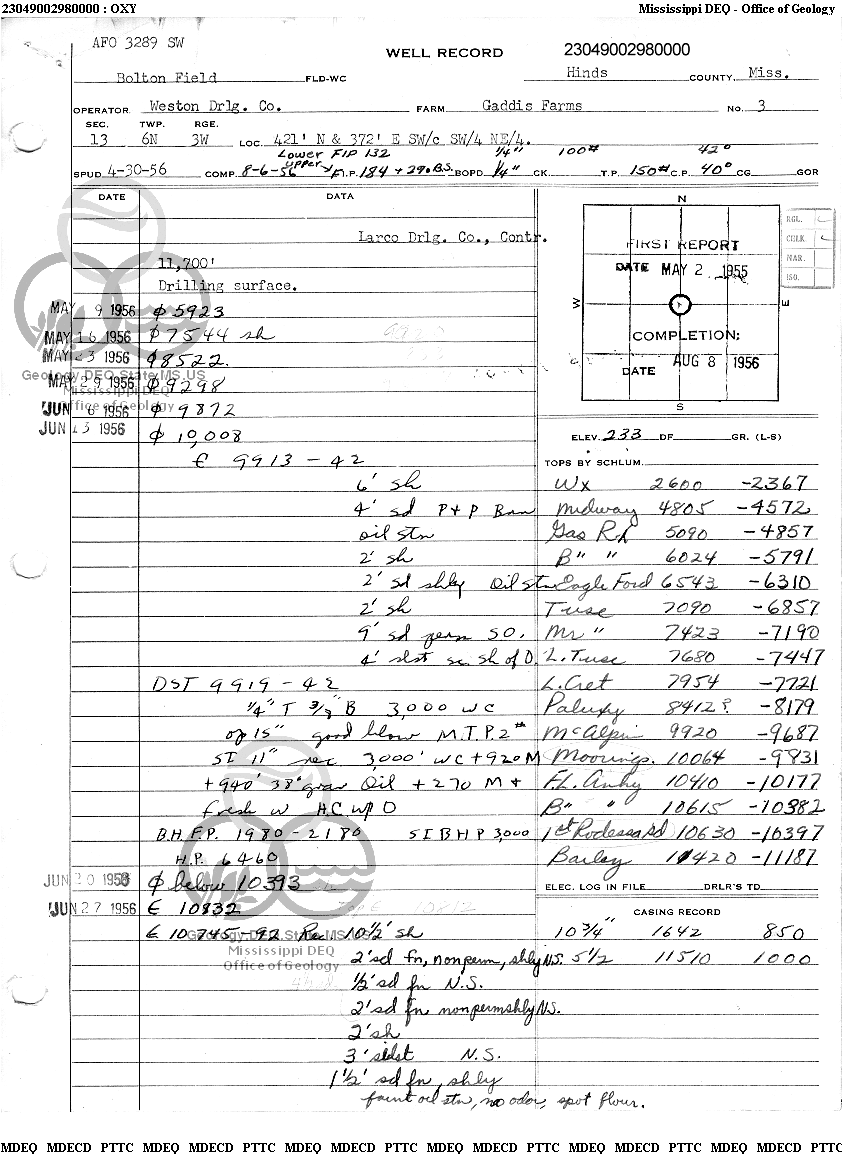 23049002980000 : OXY Mississippi DEQ - Office of Geology
AFO 3289 SW
WELL RECORD 23049002980000
Bolton Field FLD-WC Hinds COUNTY, Miss.
OPERATOR Weston Drlg. Co. FARM Gaddis Farms NO. 3
SEC. TWP. RGE.
13 6N 3W LOC. 421' N & 372' E SW/c SW/4 NE/4.
Lower FIP 132 1/4" 100# 42°
SPUD 4-30-56 COMP. 8-6-56 upper F.I.P. 184 + 29 B.S. BOPD 1/4" CK. T.P. 150# C.P. 40° CG GOR
DATE DATA
Larco Drlg. Co., Contr.
11,700'
Drilling surface.
MAY 9 1956 ϕ 5923
MAY 16 1956 ϕ 7544 sh
MAY 23 1956 ϕ 8522.
MAY 29 1956 ϕ 9298
JUN 6 1956 ϕ 9872
JUN 13 1956 ϕ 10,008
Geology.DEQ.State.MS.US
Mississippi DEQ
Office of Geology
€ 9913 - 42
6' sh
4' sd P + P Ban
oil stn
2' sh
2' sd shly Oil stn
2' sh
9' sd perm SO.
4' slst sc. sh of O.
DST 9919 - 42
1/4" T 3/8" B 3,000 WC
op 15" good blow M.T.P. 2#
SI 11" rec 3,000' WC + 920 M
+ 940' 38° grav Oil + 270 M +
fresh w H.C. w/ O
B.H.F.P. 1980 - 2180 SIBHP 3,000
H.P. 6460
JUN 20 1956 ϕ below 10393
JUN 27 1956 € 10832
€ 10745-92 Rec 10 1/2' sh
Geology.DEQ.State.MS.US
Mississippi DEQ
Office of Geology
2' sd fn, nonperm, shly N.S.
1/2' sd fn N.S.
2' sd fn nonperm shly N.S.
2' sh
3' sldst N.S.
1 1/2' sd fn, shly
faint oil stn, no odor, spot flour.
N
RGL.
CHLK
NAR.
ISO.
FIRST REPORT
DATE MAY 2 1955
W E
COMPLETION:
DATE AUG 8 1956
S
ELEV. 233 DF GR. (L-S)
TOPS BY SCHLUM.
Wx 2600 -2367
Midway 4805 -4572
Gas Rk 5090 -4857
B" " 6024 -5791
Eagle Ford 6543 -6310
Tusc 7090 -6857
Mr " 7423 -7190
L. Tusc 7680 -7447
L. Cret 7954 -7721
Paluxy 8412? -8179
McAlpin 9920 -9687
Moorings. 10064 -9831
F.L. Anhy 10410 -10177
B" " 10615 -10382
1st Rodessa Sd 10630 -10397
Barley 11420 -11187
ELEC. LOG IN FILE DRLR'S TD
CASING RECORD
10 3/4" 1642 850
5 1/2 11510 1000
MDEQ MDECD PTTC MDEQ MDECD PTTC MDEQ MDECD PTTC MDEQ MDECD PTTC MDEQ MDECD PTTC MDEQ MDECD PTTC